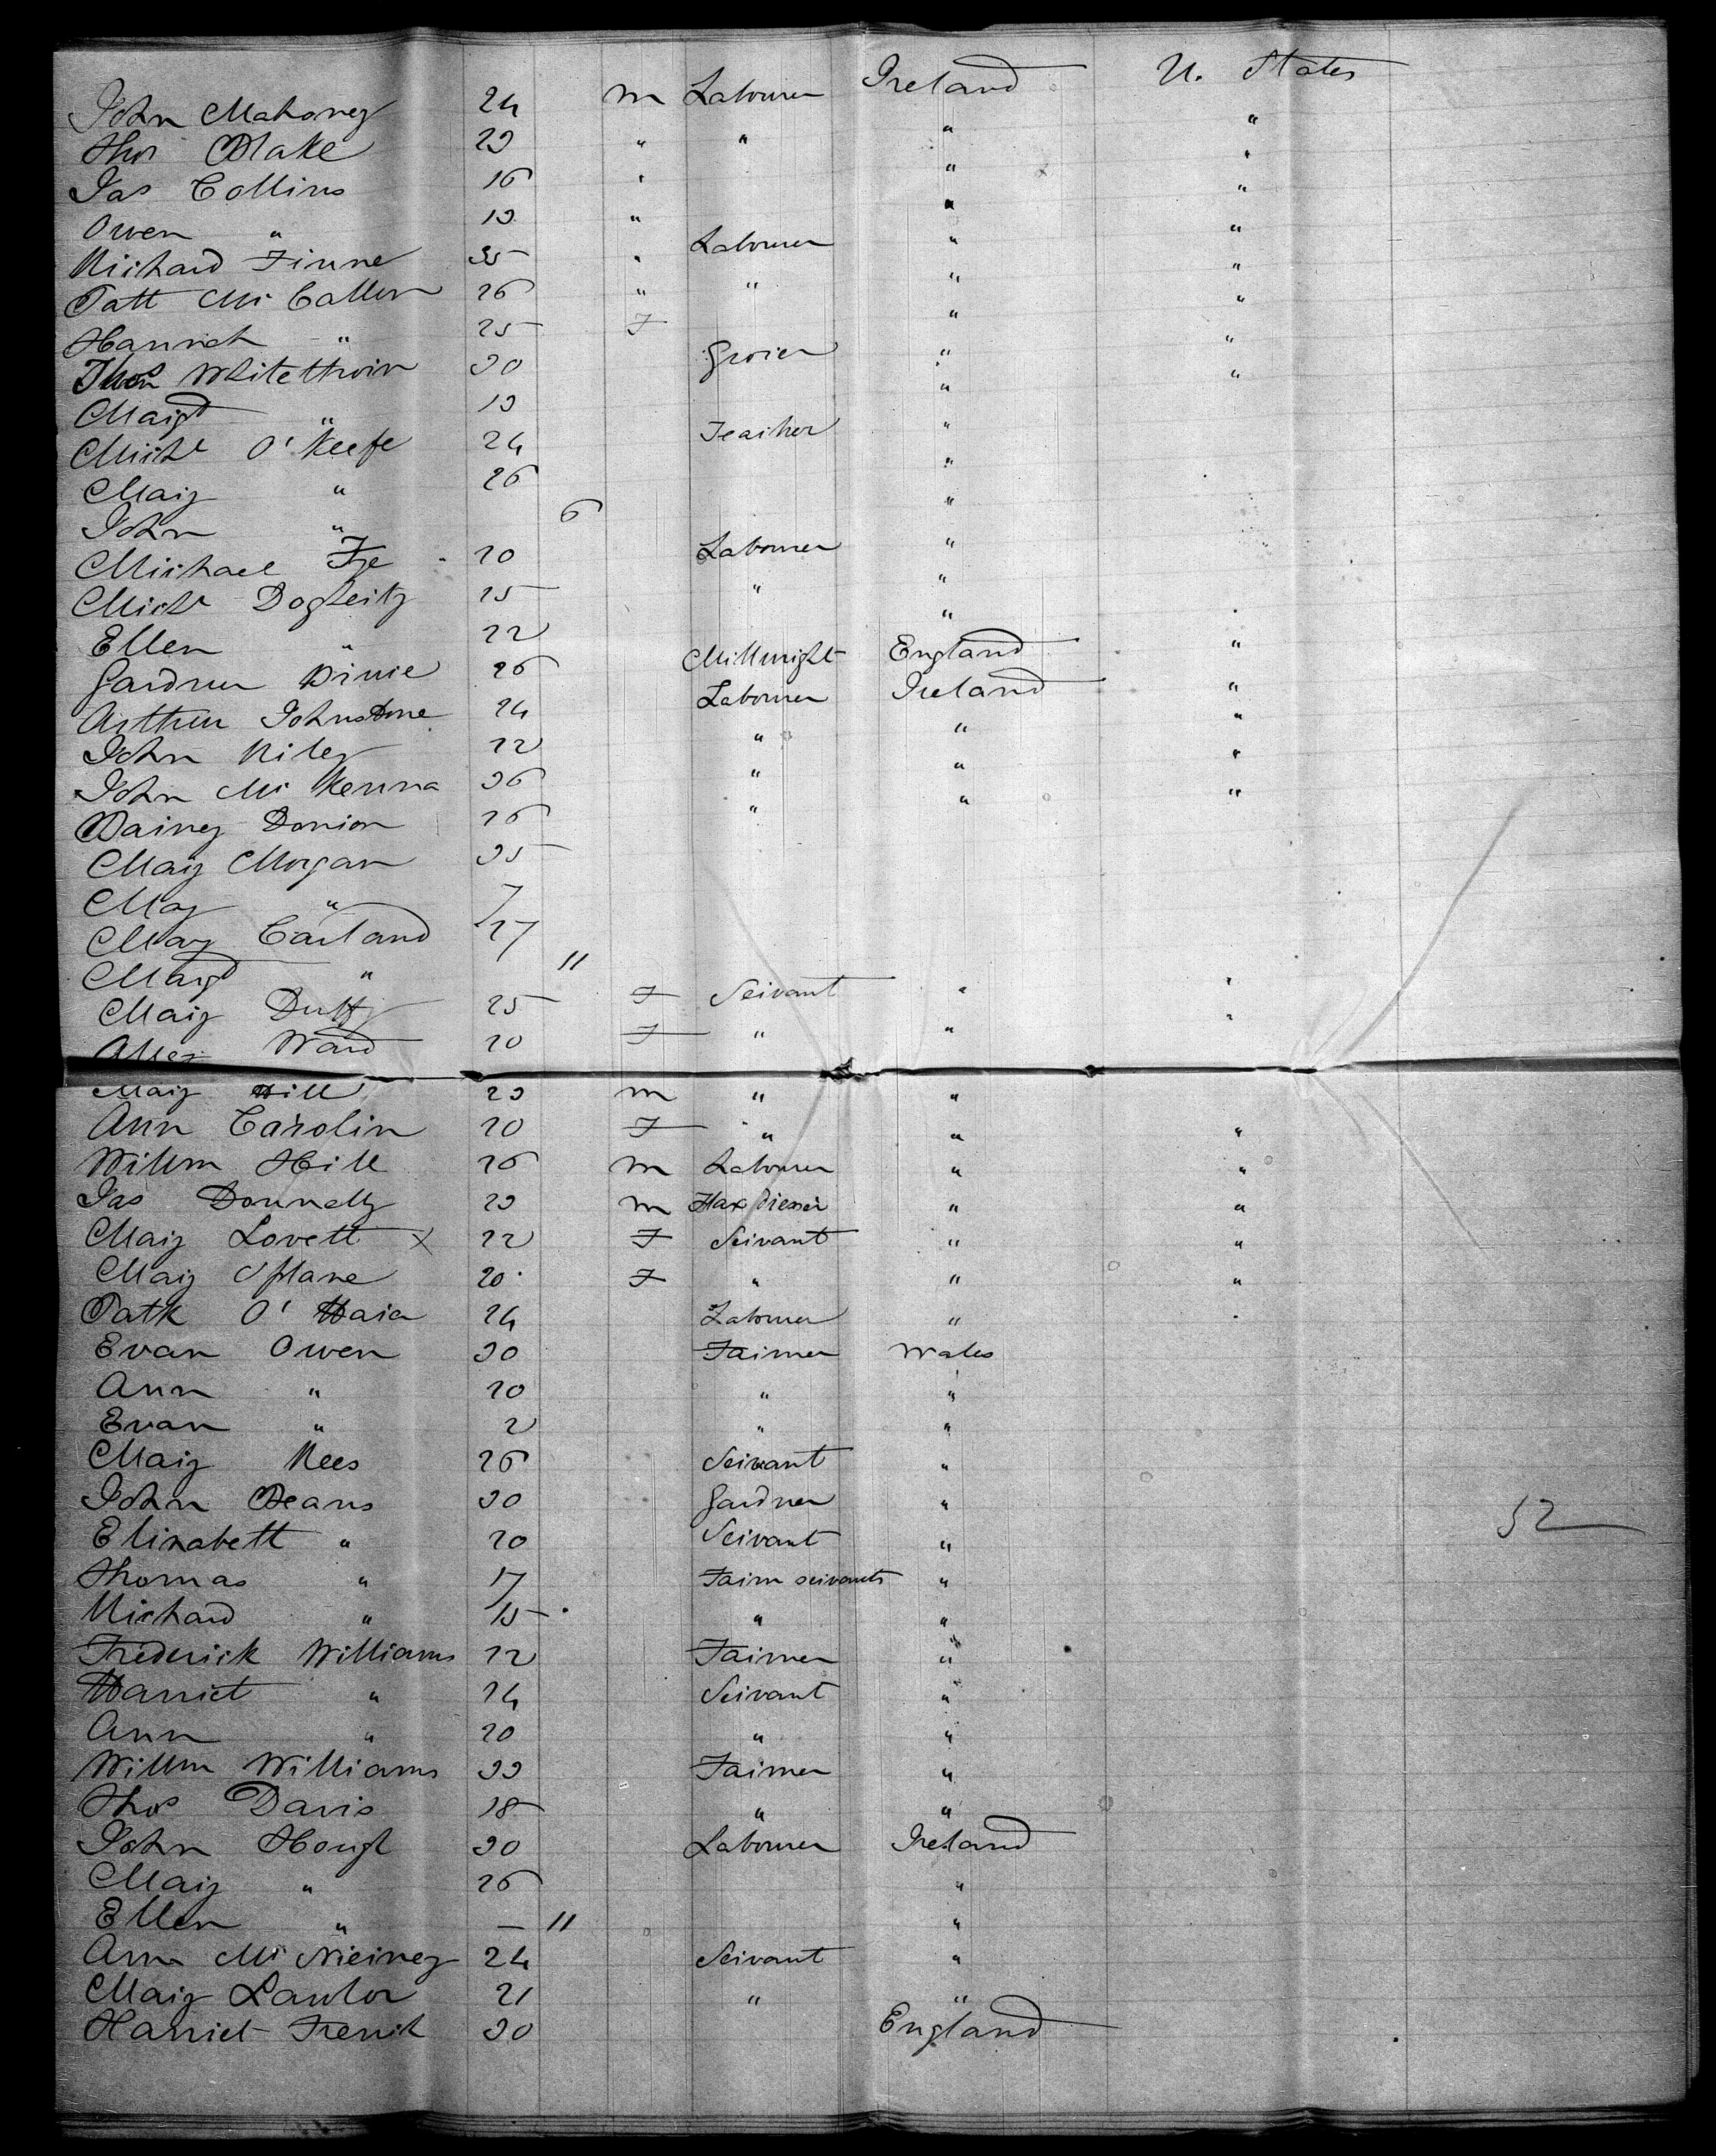 John Mahoney 24 m Labourer Ireland U. States
Thos Blake 23 " " " "
Jas Collins 16 " " "
Owen " 13 " " "
Richard Finne 35 " Labourer " "
Patt Mc Callen 26 " " " "
Hannah " 25 F " "
Thos Whitethroin 30 Grocer " "
Margt " 13 " "
Michl O' Keefe 24 Teacher "
Mary " 26 "
John " 6 "
Michael Fye 20 Labourer "
Michl Dogherty 25 " "
Ellen " 22 " "
Gardner 26 Millwright England "
Arthur Johnstone 24 Labourer Ireland "
John Riley 22 " " "
John Mc Kenna 36 " " "
Barney Donion 26 " " "
Mary Morgan 35
May " 7
Mary Carland 27
Margt " 11
Mary Duffy 25 F Servant " "
Ward 20 F " " "
Mary Hill 23 m " "
Ann Carolin 20 F " " "
Willm Hill 26 m Labourer " "
Jas Donnelly 23 m Flax Dresser " "
Mary Lovett x 22 F Servant " "
Mary Splane 20 F " " "
Patk O' Hara 24 Labourer " "
Evan Owen 30 Farmer Wales
Ann " 20 " "
Evan " 2 " "
Mary Rees 26 Servant "
John Beans 30 Gardner "
Elizabeth " 20 Servant " 52
Thomas " 17 Farm servants "
Richard " 15 " "
Frederick Williams 22 Farmer "
Harriet " 24 Servant "
Ann " 20 " "
Willm Williams 33 Farmer "
Thos Davis 18 " "
John Hough 30 Labourer Ireland
Mary " 26 "
Ellen " — 11 "
Ann Mc Nierney 24 Servant "
Mary Lawlor 21 " "
Harriet French 30 England